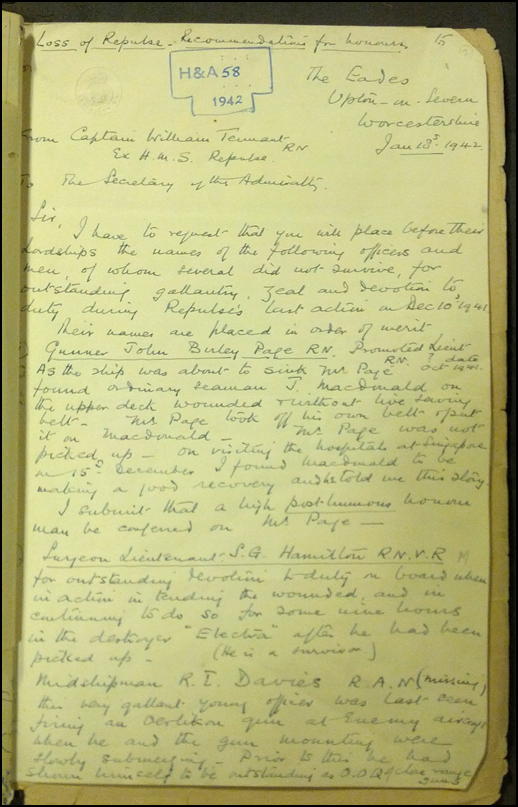 Loss of Repulse - Recommendations for honours
15
H&A 58
1942
The Eades
Upton-on-Severn
Worcestershire
Jan 13th 1942
From Captain William Tennant RN
Ex H.M.S. Repulse.
To The Secretary of the Admiralty.
Sir,
I have to request that you will place before their
Lordships the names of the following officers and
men, of whom several did not survive, for
outstanding gallantry, zeal and devotion to
duty during Repulse's last action on Dec 10th 1941
Their names are placed in order of merit
Gunner John Birley Page RN. Promoted Lieut RN. ? date Oct 1941.
As the ship was about to sink Mr Page
found ordinary seaman J. Macdonald on
the upper deck wounded & without live saving
belt - Mr Page took off his own belt & put
it on Macdonald - Mr Page was not
picked up - on visiting the hospitals at Singapore
on 15th December I found Macdonald to be
making a good recovery and he told me this story.
I submit that a high posthumous honour
may be conferred on Mr Page -
Surgeon Lieutenant S.G. Hamilton R.N.V.R
for outstanding devotion to duty on board when
in action in tending the wounded, and in
continuing to do so for some nine hours
in the destroyer "Electra" after he had been
picked up - (He is a survivor)
Midshipman R.I. Davies R.A.N (missing)
this very gallant young officer was last seen
firing an Oerlikon gun at Enemy aircraft
when he and the gun mounting were
slowly submerging - Prior to this he had
shown himself to be outstanding as O.O.Q of close range guns